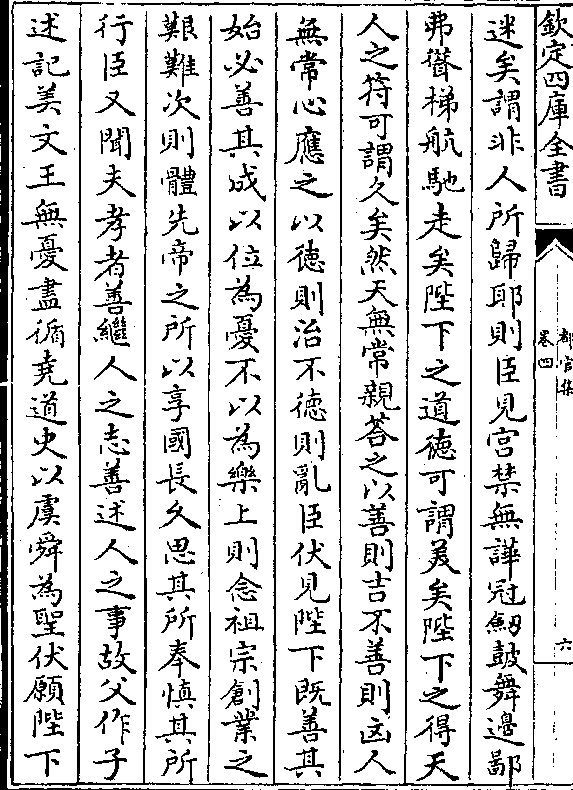 欽定四庫全書
都官集
卷四
六
迷矣謂非人所歸耶則臣見宮禁無譁冠劔鼓舞邊鄙
弗聳梯航馳走矣陛下之道徳可謂美矣陛下之得天
人之符可謂久矣然天無常親荅之以善則吉不善則凶人
無常心應之以徳則治不徳則亂臣伏見陛下既善其
始必善其成以位為憂不以為樂上則念祖宗創業之
艱難次則體先帝之所以享國長久思其所奉慎其所
行臣又聞夫孝者善繼人之志善述人之事故父作子
述記美文王無憂盡循堯道史以虞舜為聖伏願陛下